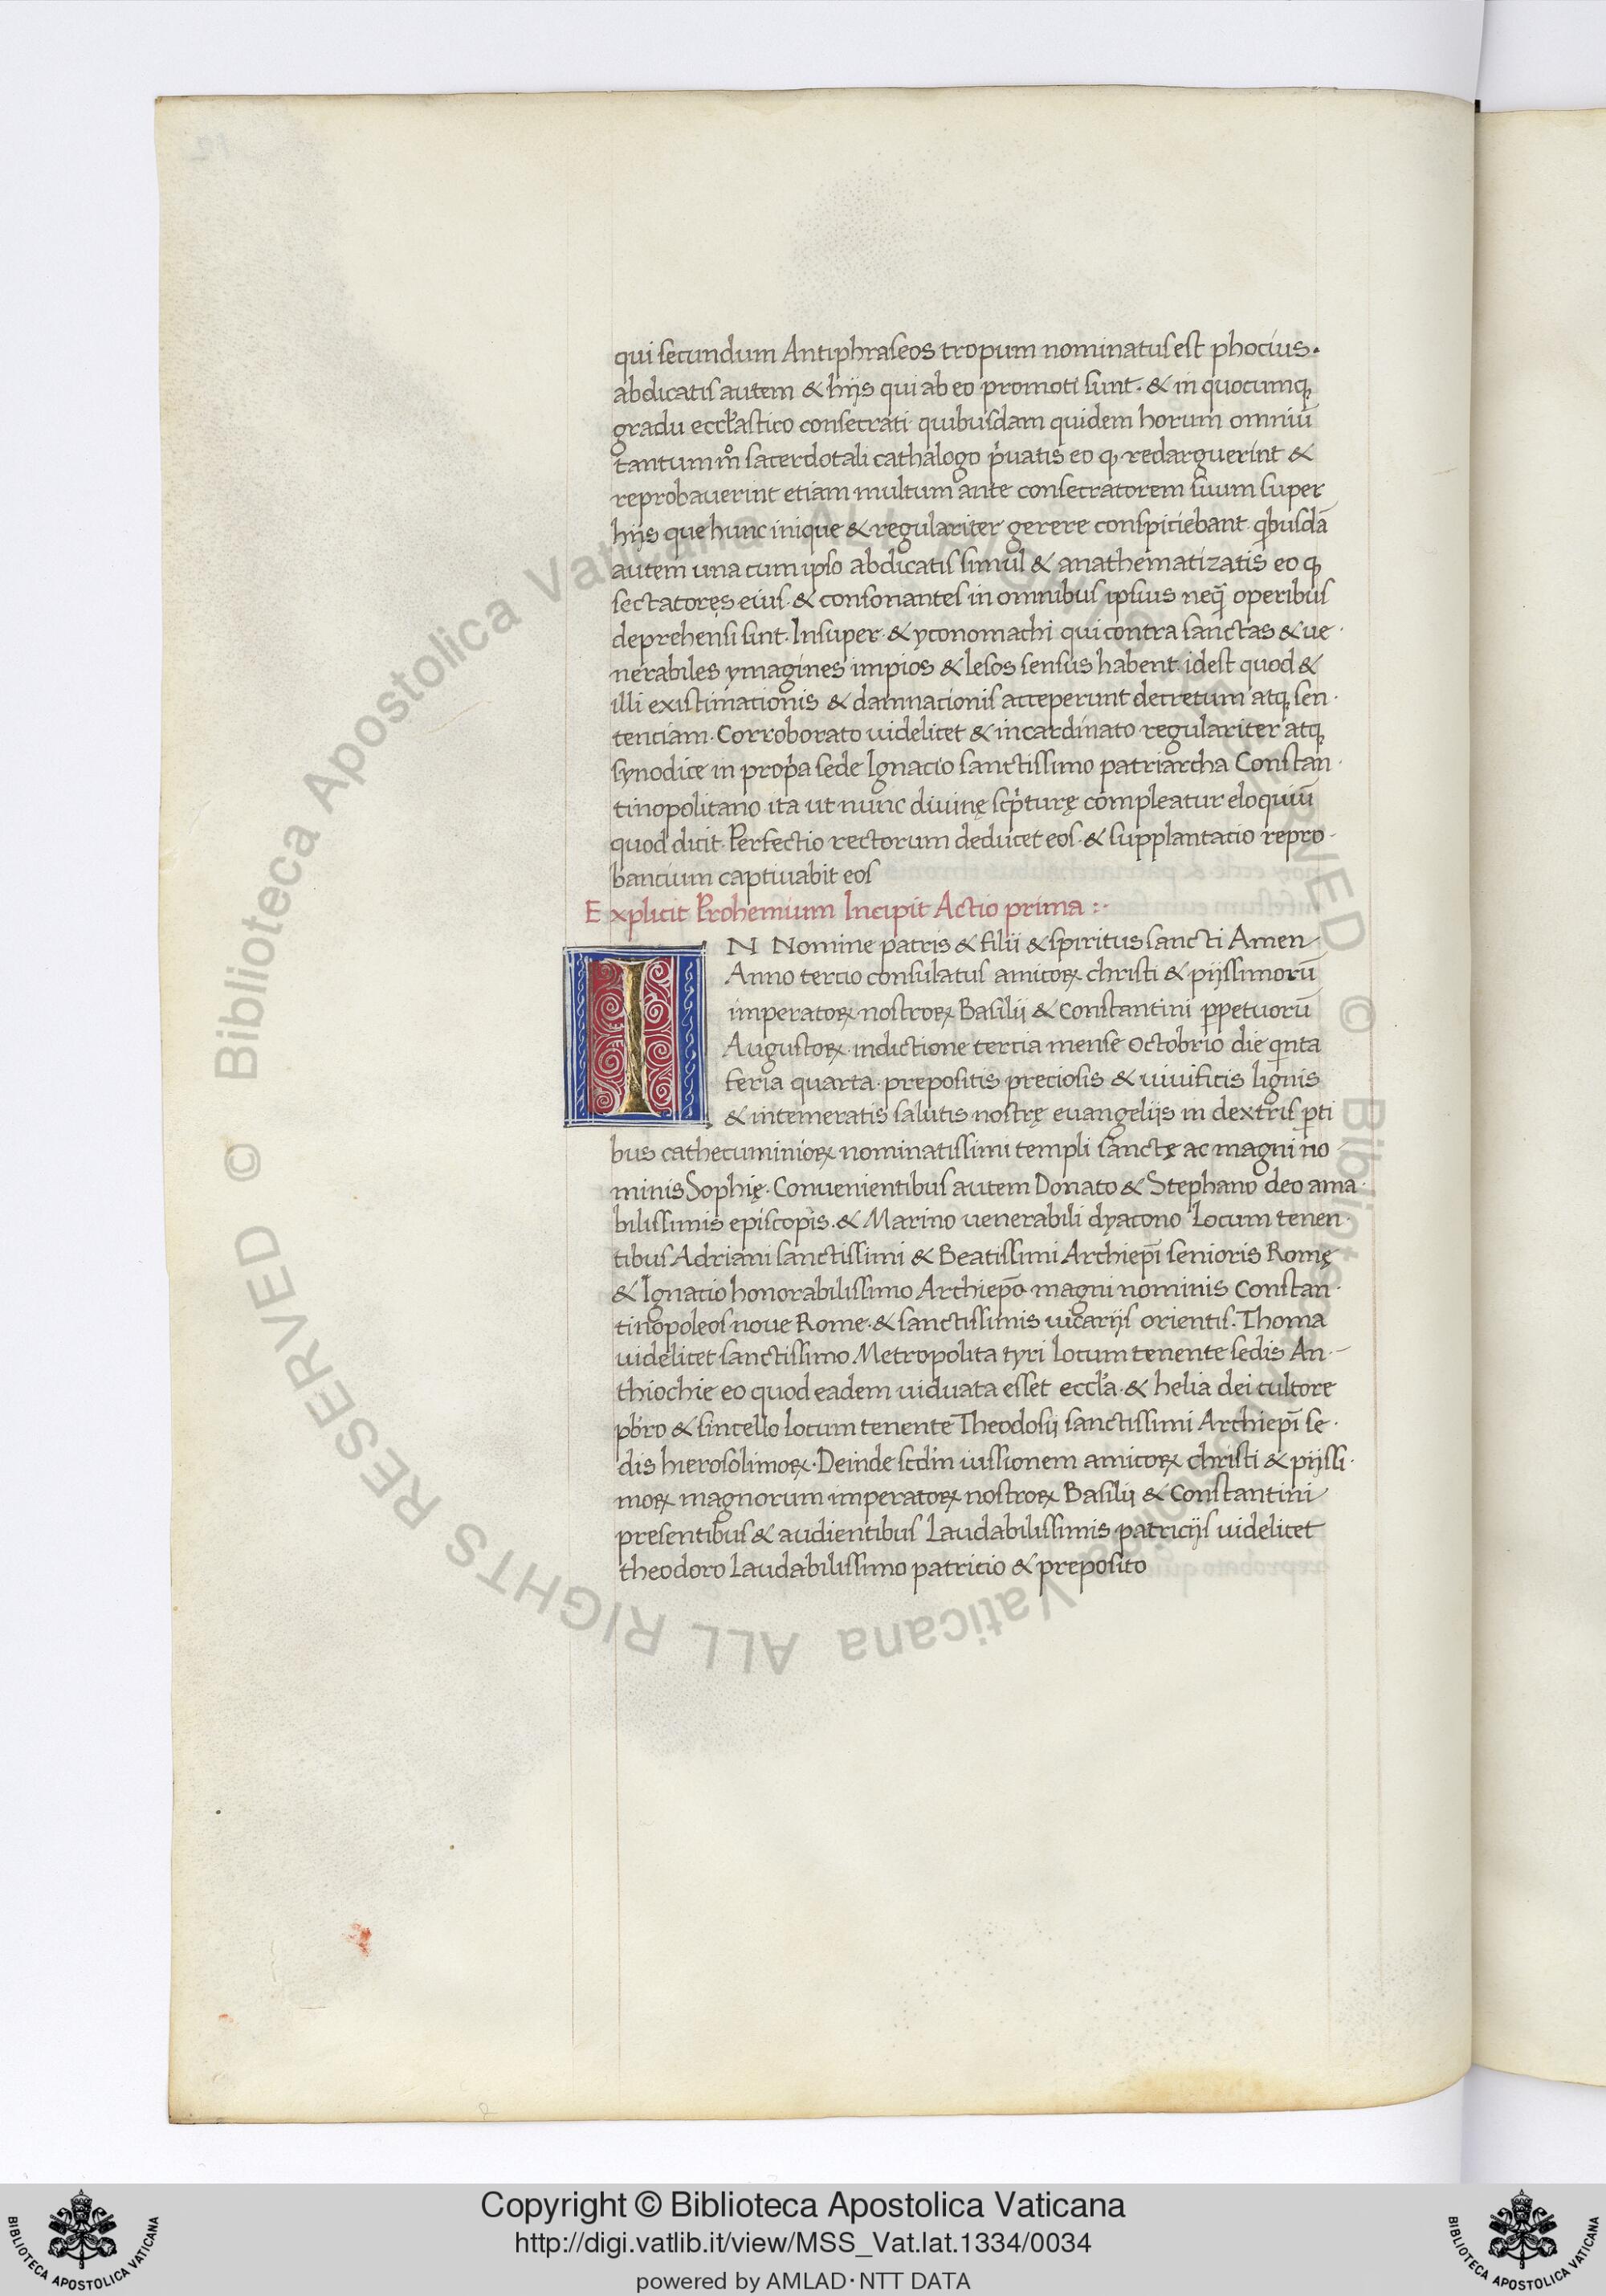 qui secundum Antiphraseos tropum nominatus est phocius.
abdicatis autem & hijs qui ab eo promoti sunt. & in quocumqꝫ
gradu eccl̓astico consecrati quibusdam quidem horum omniū
tantum mͦ sacerdotali cathalogo p̓uatis eo qꝫ redarguerint &
reprobauerint etiam multum ante consecratorem suum super
hijs que hunc inique & regulariter gerere conspiciebant. qͥbusdā
autem una cum ipso abdicatis simul & anathematizatis eo qꝫ
sectatores eius. & consonantes in omnibus ipsius neq̄ operibus
deprehensi sint. Insuper. & yconomachi qui contra sanctas & ue.
nerabiles ymagines impios & lesos sensus habent. idest quod &
illi existimationis & damnacionis acceperunt decretum atqꝫ sen.
tenciam. Corroborato uidelicet & incardinato regulariter atqꝫ
synodice in prop̓a sede Ignacio sanctissimo patriarcha Constan.
tinopolitano ita ut nunc diuinę scp̓turę compleatur eloquiū
quod dicit. Perfectio rectorum deducet eos. & supplantacio repro.
bancium captiuabit eos
Explicit Prohemium Incipit Actio prima :.
IN Nomine patris & filii & spiritus sancti Amen
Anno tercio consulatus amicoꝝ christi & pijssimorū
imperatoꝝ nostroꝝ Basilij & Constantini ꝑpetuorū
Augustoꝝ. indictione tercia mense Octobrio die qͥnta
feria quarta. prepositis preciosis & uiuificis lignis
& intemeratis salutis nostrę euangelijs in dextris ꝑti
bus cathecuminioꝝ nominatissimi templi sanctę ac magni no
minis Sophię. Conuenientibus autem Donato & Stephano deo ama.
bilissimis episcopis. & Marino uenerabili dyacono Locum tenen.
tibus Adriani sanctissimi & Beatissimi Archiepī senioris Romę
& Ignatio honorabilissimo Archiepō magni nominis Constan.
tinopoleos noue Rome. & sanctissimis uicarijs orientis. Thoma
uidelicet sanctissimo Metropolita tyri locum tenente sedis An.
thiochie eo quod eadem uiduata esset eccl̓a. & helia dei cultore
pb̓ro & sincello locum tenente Theodosij sanctissimi Archiepī se.
dis hierosolimoꝝ. Deinde scd̓m iussionem amicoꝝ christi & pijssi.
moꝝ magnorum imperatoꝝ nostroꝝ Basilij & Constantini
presentibus & audientibus Laudabilissimis patricijs uidelicet
theodoro Laudabilissimo patricio & preposito
© Biblioteca Apostolica Vaticana ALL RIGHTS RESERVED © Biblioteca Apostolica Vaticana ALL RIGHTS RESERVED
Copyright © Biblioteca Apostolica Vaticana
http://digi.vatlib.it/view/MSS_Vat.lat.1334/0034
powered by AMLAD·NTT DATA
BIBLIOTECA APOSTOLICA VATICANA
BIBLIOTECA APOSTOLICA VATICANA